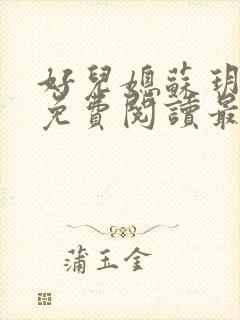 好兒媳蘇玥
免費閱讀最
蒲玉金